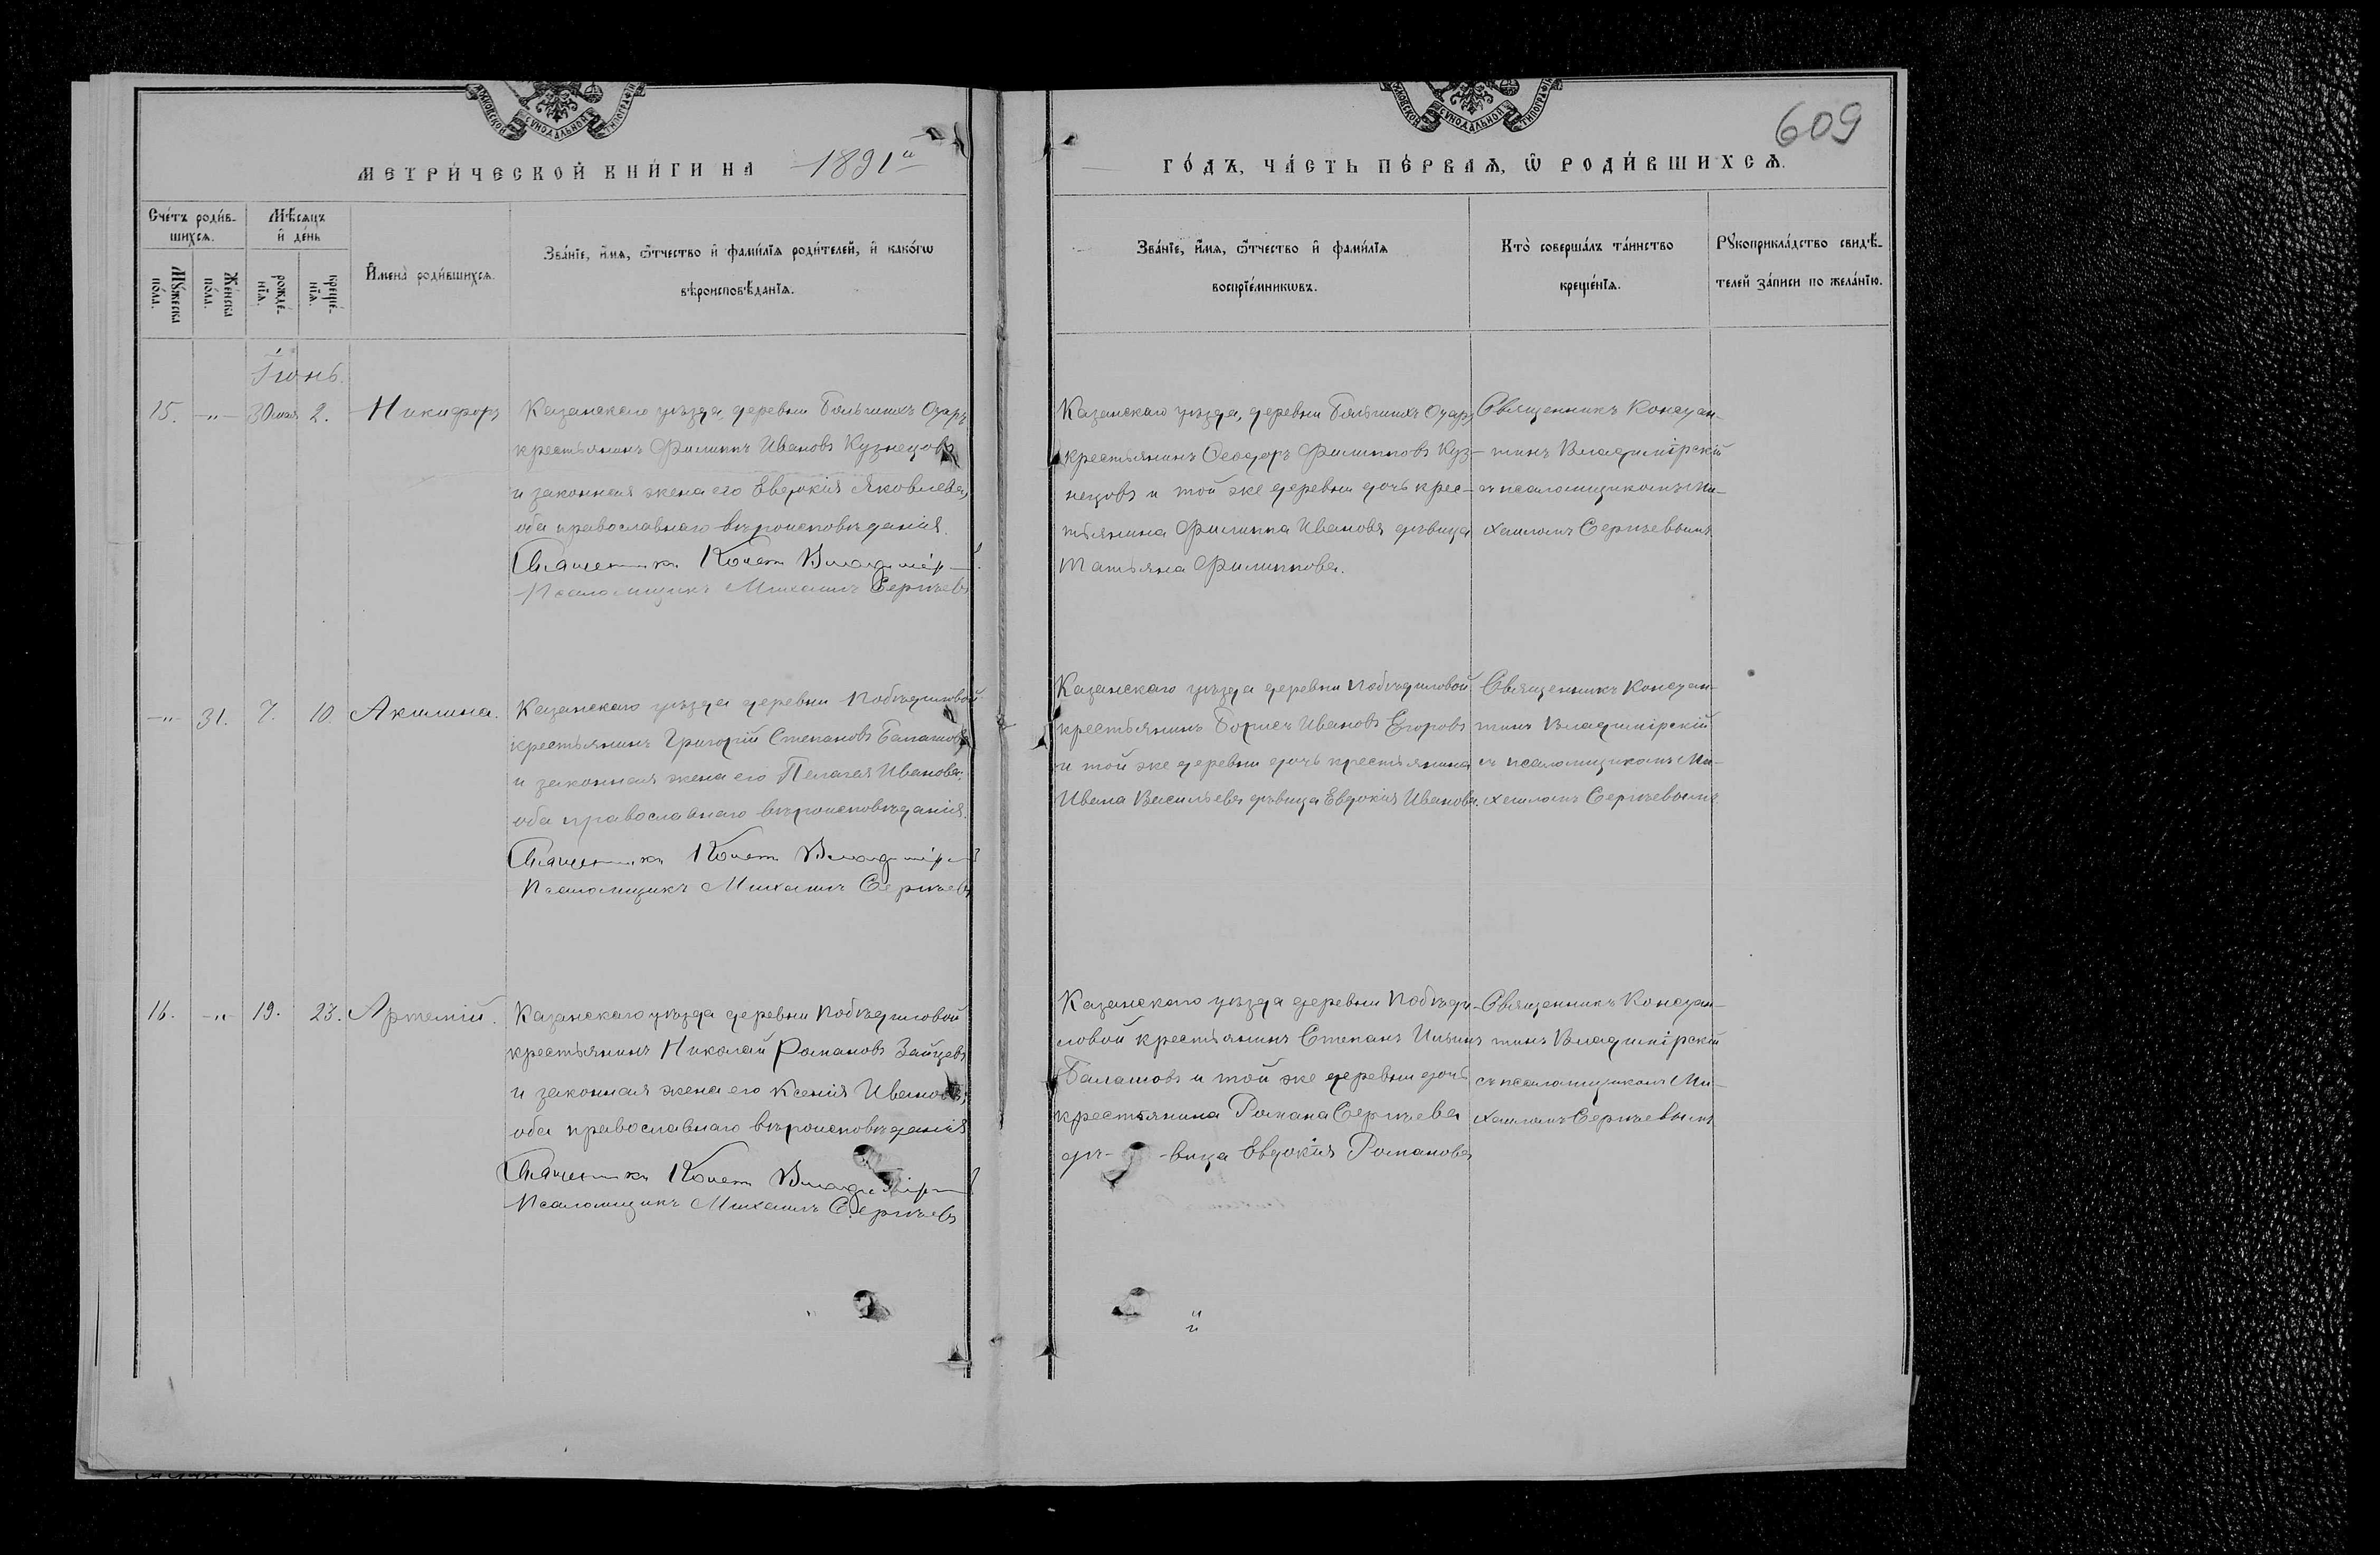 609
МЕТРИ́ЧЕСКОЙ КНИ́ГИ НА 1891й
ГО́ДЪ, ЧА́СТЬ ПЕ́РВАѦ, Ѡ҆ РОДИ́ВШИХСѦ.
Сче́тъ роди́в-
шихсѧ.
Мꙋ́жеска
по́ла.
Же́нска
по́ла.
Мѣ́сѧцъ
и҆ де́нь
рожде́-
нїѧ.
креще́-
нїѧ.
И҆мена̀ роди́вшихсѧ.
Зва́нїе, и҆́мѧ, ѻ҆́тчество и҆ фами́лїѧ роди́телей, и҆ како́гѡ
вѣроисповѣ́данїѧ.
Зва́нїе, и҆́мѧ, ѻ҆́тчество и҆ фами́лїѧ
воспрїе́мникѡвъ.
Кто̀ соверша́лъ та́инство
креще́нїѧ.
Рꙋкоприкла́дство свидѣ́-
телей за́писи по жела́нїю.
Іюнь.
15. -"- 30 мая 2. Никифоръ
Казанскаго уѣзда, деревни Большихъ Озаръ
крестьянинъ Филиппъ Ивановъ Кузнецовъ
и законная жена его Евдокія Яковлева,
оба православнаго вѣроисповѣданія.
Священникъ Конст Владимір
Псаломщикъ Михаилъ Сергѣевъ
Казанскаго уѣзда, деревни Большихъ Озаръ
крестьянинъ Ѳеодоръ Филипповъ Куз-
нецовъ и той же деревни дочь крес-
тьянина Филиппа Иванова дѣвица
Татьяна Филиппова.
Священникъ Констан-
тинъ Владимірскій
съ псаломщикомъ Ми-
хаиломъ Сергѣевымъ
-"- 31. 7. 10. Акилина.
Казанскаго уѣзда деревни Побѣдиловой
крестьянинъ Григорій Степановъ Балашовъ
и законная жена его Пелагея Иванова,
оба православнаго вѣроисповѣданія.
Священникъ Конст Владимір
Псаломщикъ Михаилъ Сергѣевъ
Казанскаго уѣзда деревни Побѣдиловой
крестьянинъ Борисъ Ивановъ Егоровъ
и той же деревни дочь крестьянина
Ивана Васильева дѣвица Евдокія Иванова.
Священникъ Констан-
тинъ Владимірскій
съ псаломщикомъ Ми-
хаиломъ Сергѣевымъ.
16. -"- 19. 23. Артемій.
Казанскаго уѣзда деревни Побѣдиловой
крестьянинъ Николай Романовъ Зайцевъ
и законная жена его Ксенія Иванова,
оба православнаго вѣроисповѣданія
Священникъ Конст Владимір
Псаломщикъ Михаилъ Сергѣевъ
Казанскаго уѣзда деревни Побѣди-
ловой крестьянинъ Степанъ Ильинъ
Балашовъ и той же деревни дочь
крестьянина Романа Сергѣева
дѣ- -вица Евдокія Романова
Священникъ Констан-
тинъ Владимірскій
съ псаломщикомъ Ми-
хаиломъ Сергѣевымъ